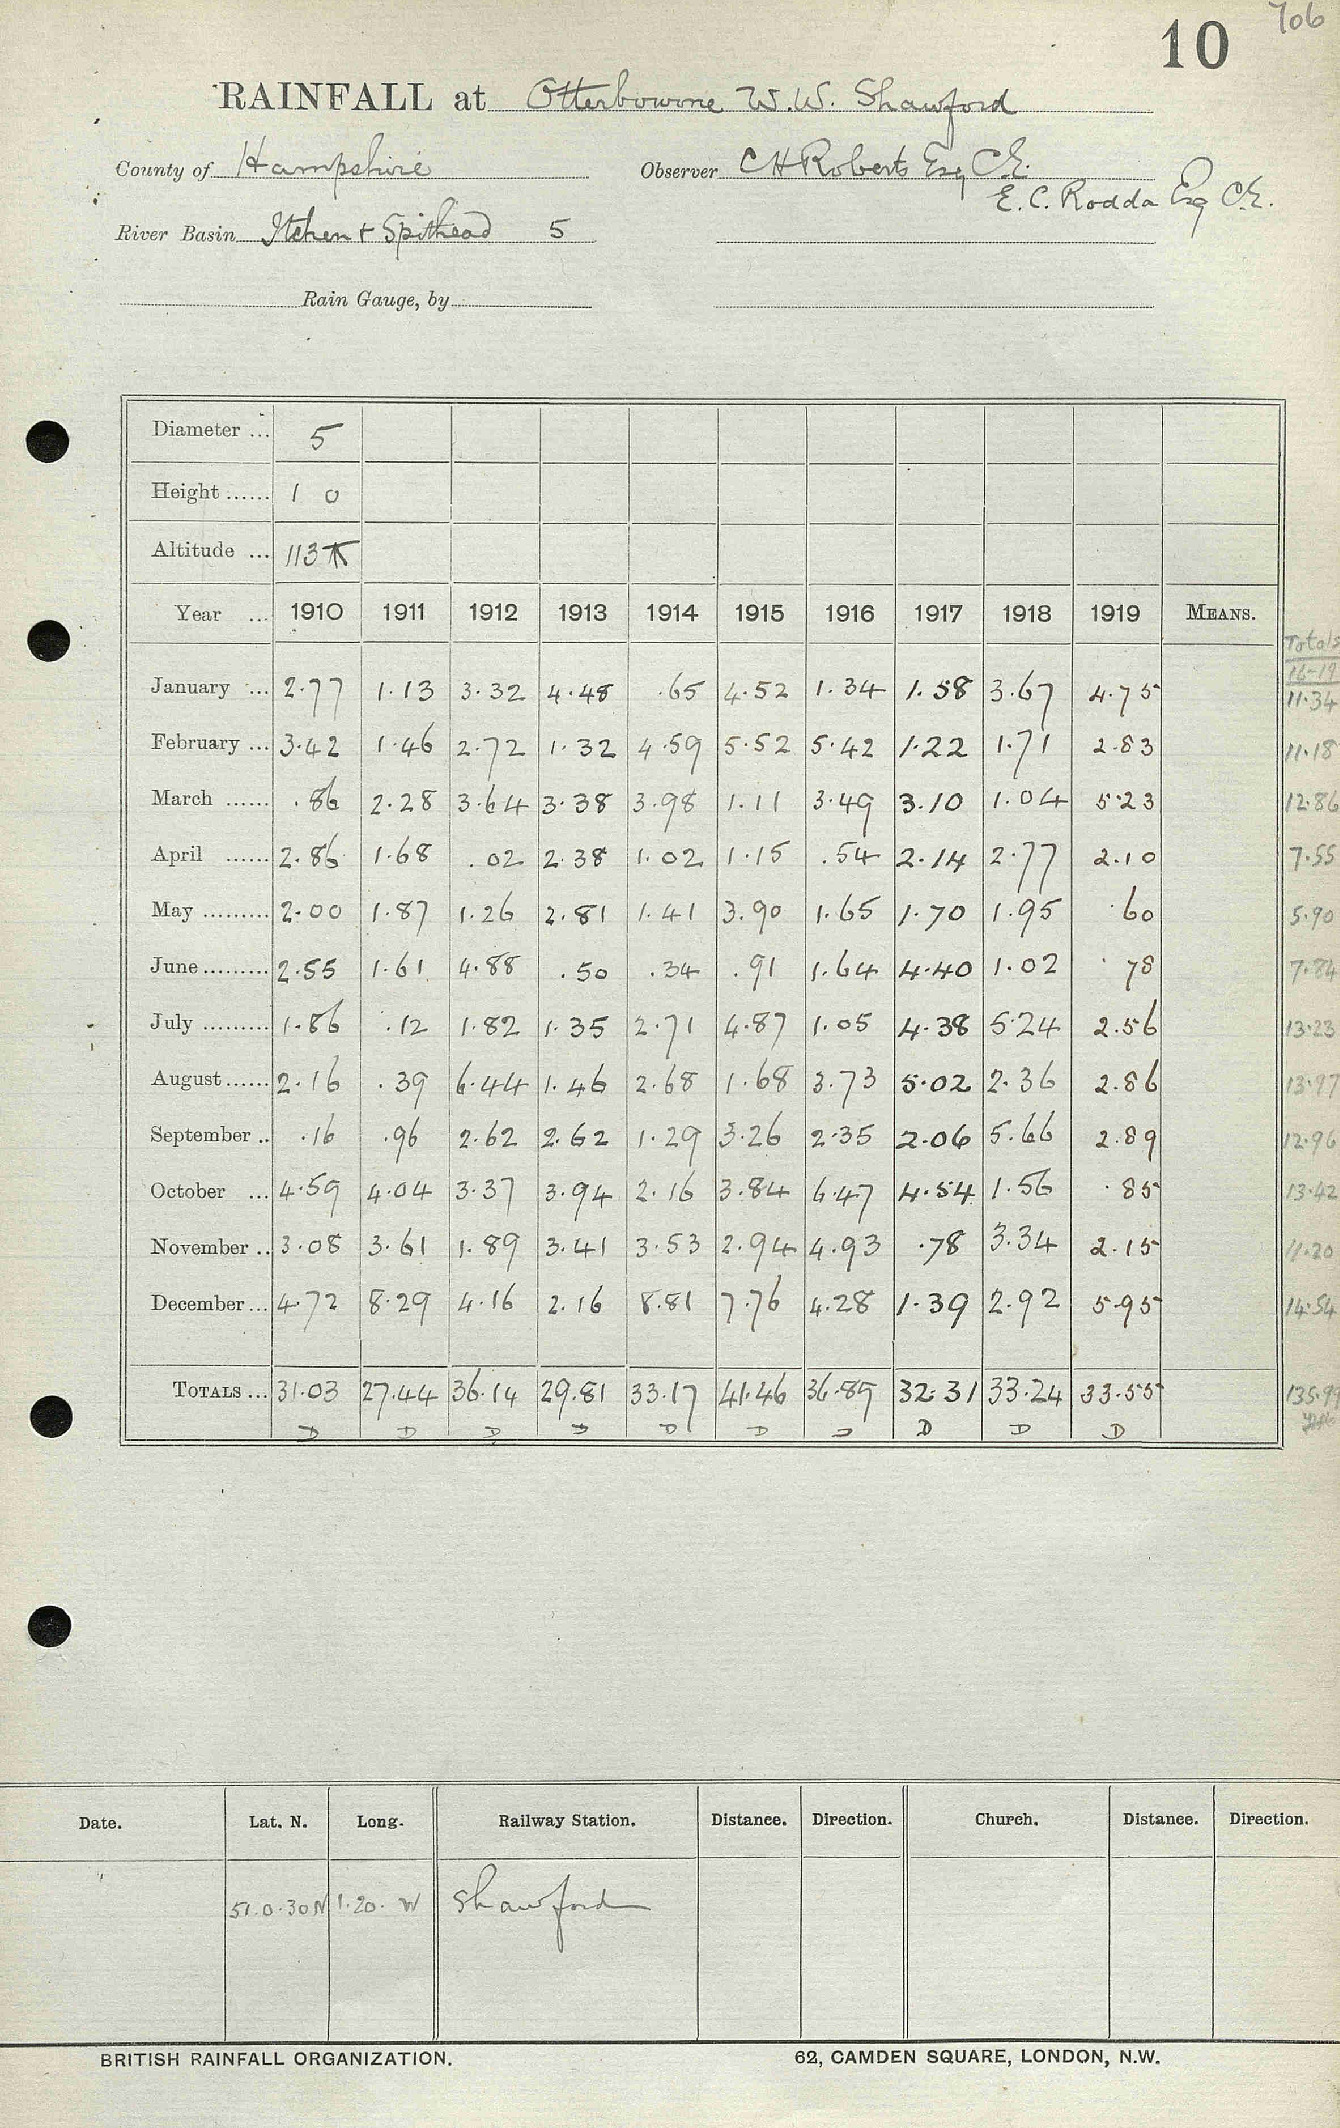 706
10
RAINFALL at Otterbourne W.W. Shawford
County of Hampshire Observer C H Roberts Esq C.E.
E. C. Rodda Esq C.E.
River Basin Itchen + Spithead 5
Rain Gauge, by
Diameter ... 5
Height ...... 1 0
Altitude ... 113
Year ... 1910 1911 1912 1913 1914 1915 1916 1917 1918 1919 MEANS.
Totals
16-19
January ... 2.77 1.13 3.32 4.48 .65 4.52 1.34 1.58 3.67 4.75 11.34
February ... 3.42 1.46 2.72 1.32 4.59 5.52 5.42 1.22 1.71 2.83 11.18
March ...... .86 2.28 3.64 3.38 3.98 1.11 3.49 3.10 1.04 5.23 12.86
April ...... 2.86 1.68 .02 2.38 1.02 1.15 .54 2.14 2.77 2.10 7.55
May ......... 2.00 1.87 1.26 2.81 1.41 3.90 1.65 1.70 1.95 .60 5.90
June ......... 2.55 1.61 4.88 .50 .34 .91 1.64 4.40 1.02 .78 7.84
July ......... 1.86 .12 1.82 1.35 2.71 4.87 1.05 4.38 5.24 2.56 13.23
August ...... 2.16 .39 6.44 1.46 2.68 1.68 3.73 5.02 2.36 2.86 13.97
September .. .16 .96 2.62 2.62 1.29 3.26 2.35 2.06 5.66 2.89 12.96
October ... 4.59 4.04 3.37 3.94 2.16 3.84 6.47 4.54 1.56 .85 13.42
November .. 3.08 3.61 1.89 3.41 3.53 2.94 4.93 .78 3.34 2.15 11.20
December ... 4.72 8.29 4.16 2.16 8.81 7.76 4.28 1.39 2.92 5.95 14.54
TOTALS ... 31.03 27.44 36.14 29.81 33.17 41.46 36.89 32.31 33.24 33.55 135.99
D D D D D D D D D D
Date. Lat. N. Long. Railway Station. Distance. Direction. Church. Distance. Direction.
51.0.30N 1.20. W Shawford
BRITISH RAINFALL ORGANIZATION. 62, CAMDEN SQUARE, LONDON, N.W.